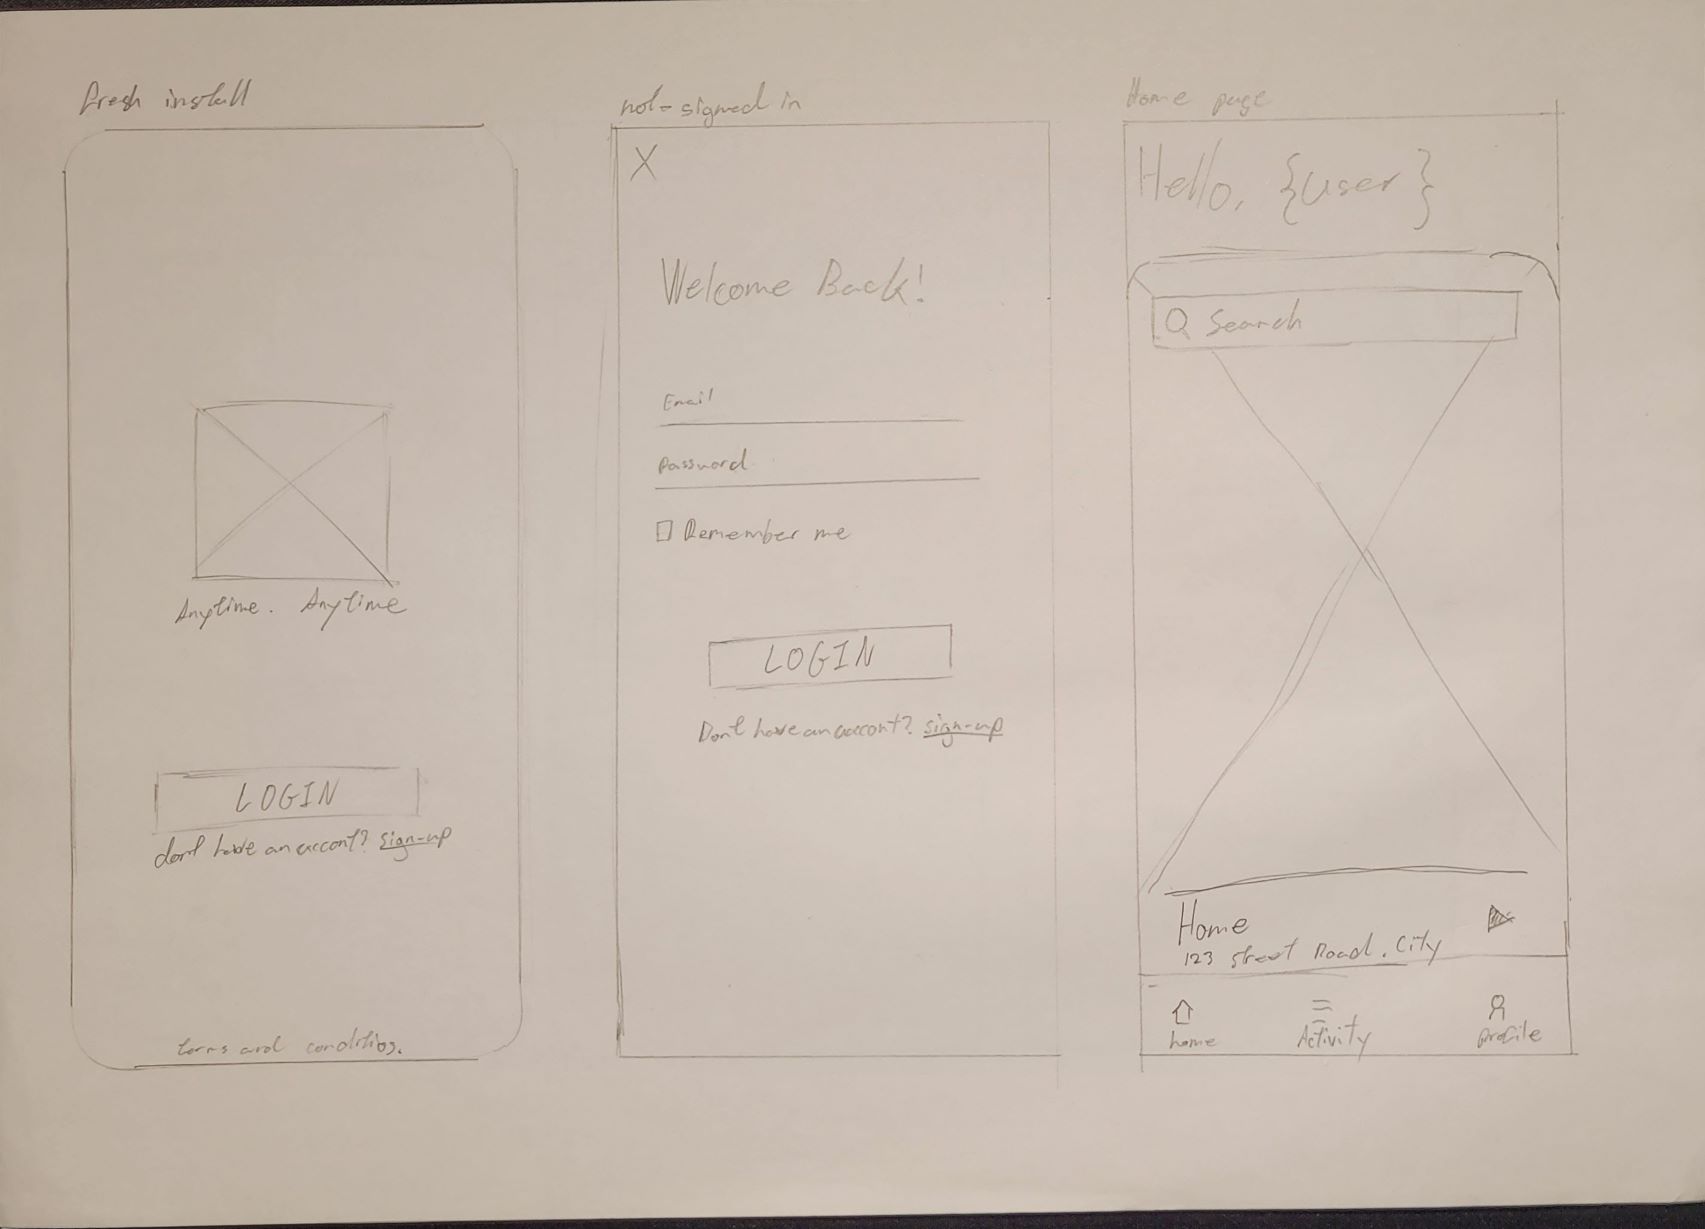 fresh install
Anytime. Anytime
LOGIN
don't have an accont? sign-up
terms and conditios.
not-signed in
X
Welcome Back!
Email
Password
Remember me
LOGIN
Dont have an accont? sign-up
Home page
Hello, {user}
Search
Home
123 street Road, City
home Activity profile